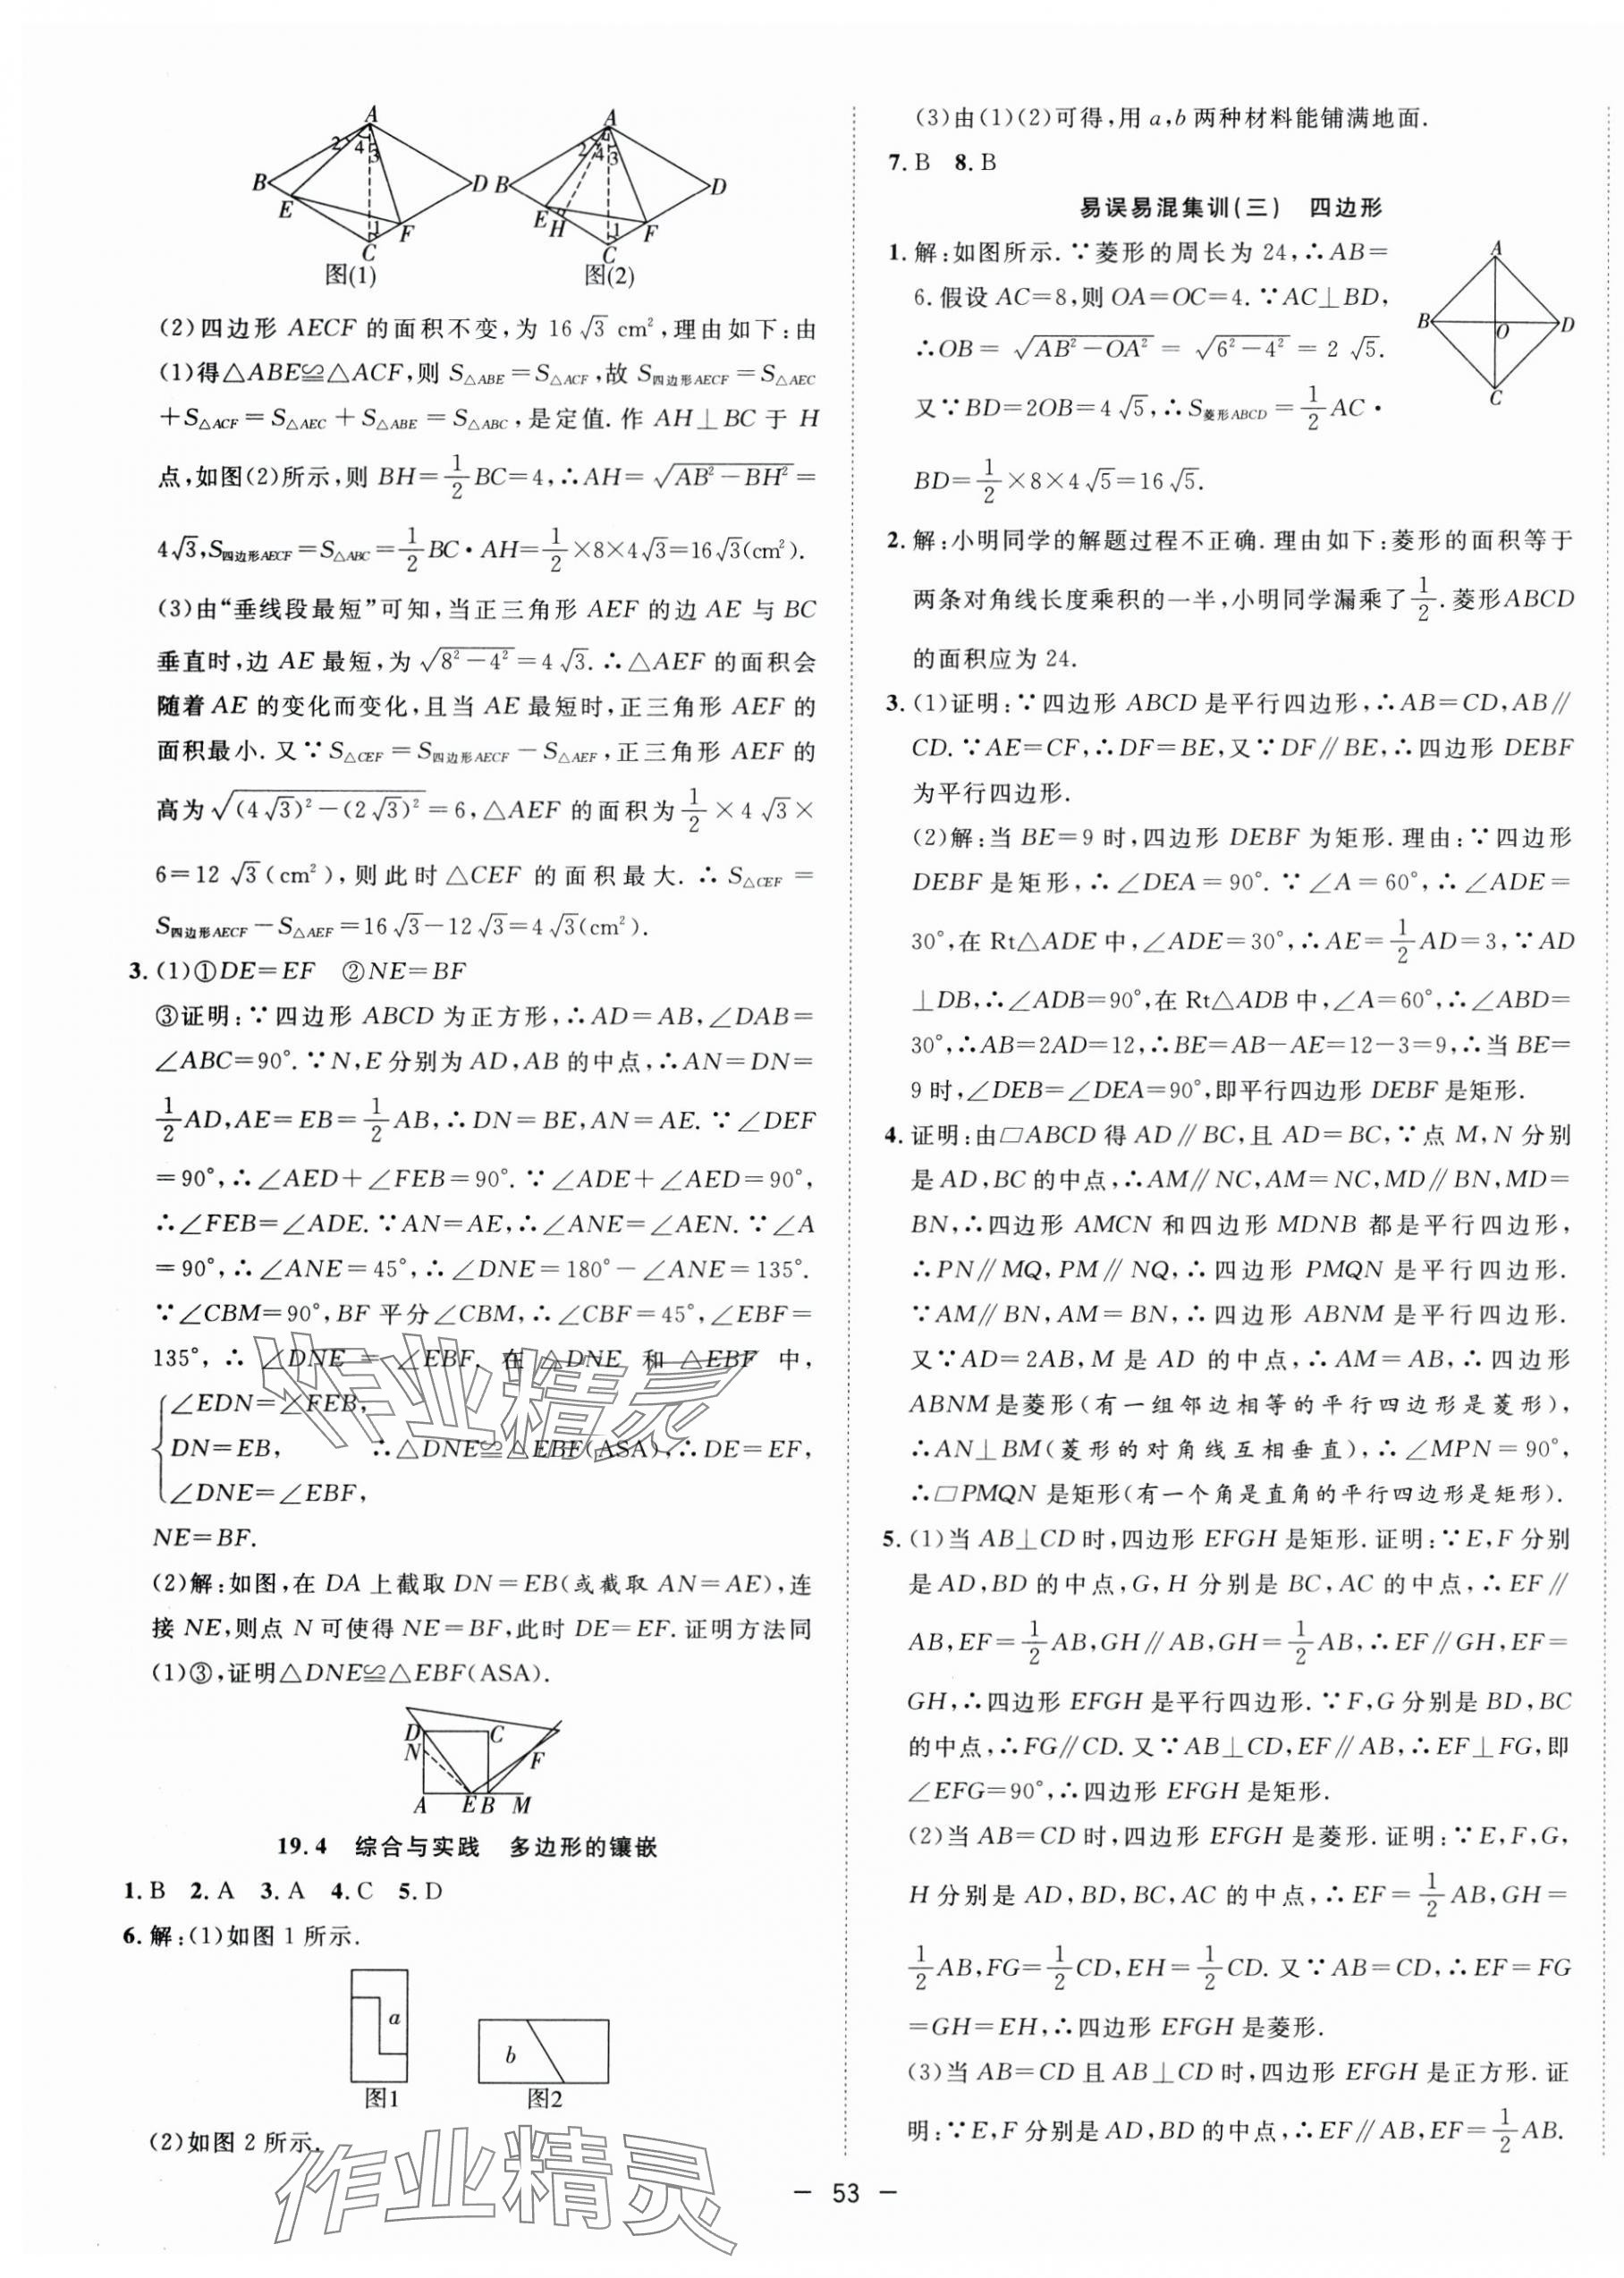 A
2 4 3
B D
E F
1
C
图(1)
A
2 4 3
B D
E H F
1
C
图(2)
(2)四边形 AECF 的面积不变,为 16√3 cm²,理由如下:由
(1)得△ABE≌△ACF,则 S△ABE=S△ACF,故 S四边形AECF=S△AEC
+S△ACF=S△AEC+S△ABE=S△ABC,是定值. 作 AH⊥BC 于 H
点,如图(2)所示,则 BH=1/2BC=4,∴AH=√(AB²-BH²)=
4√3,S四边形AECF=S△ABC=1/2BC·AH=1/2×8×4√3=16√3(cm²).
(3)由“垂线段最短”可知,当正三角形 AEF 的边 AE 与 BC
垂直时,边 AE 最短,为√(8²-4²)=4√3. ∴△AEF 的面积会
随着 AE 的变化而变化,且当 AE 最短时,正三角形 AEF 的
面积最小. 又∵S△CEF=S四边形AECF-S△AEF,正三角形 AEF 的
高为√((4√3)²-(2√3)²)=6,△AEF 的面积为1/2×4√3×
6=12√3(cm²),则此时△CEF 的面积最大. ∴S△CEF=
S四边形AECF-S△AEF=16√3-12√3=4√3(cm²).
3. (1)①DE=EF ②NE=BF
③证明:∵四边形 ABCD 为正方形,∴AD=AB,∠DAB=
∠ABC=90°. ∵N,E 分别为 AD,AB 的中点,∴AN=DN=
1/2AD,AE=EB=1/2AB,∴DN=BE,AN=AE. ∵∠DEF
=90°,∴∠AED+∠FEB=90°. ∵∠ADE+∠AED=90°,
∴∠FEB=∠ADE. ∵AN=AE,∴∠ANE=∠AEN. ∵∠A
=90°,∴∠ANE=45°,∴∠DNE=180°-∠ANE=135°.
∵∠CBM=90°,BF 平分∠CBM,∴∠CBF=45°,∠EBF=
135°,∴∠DNE=∠EBF. 在△DNE 和△EBF 中,
∠EDN=∠FEB,
DN=EB, ∴△DNE≌△EBF(ASA),∴DE=EF,
∠DNE=∠EBF,
NE=BF.
(2)解:如图,在 DA 上截取 DN=EB(或截取 AN=AE),连
接 NE,则点 N 可使得 NE=BF,此时 DE=EF. 证明方法同
(1)③,证明△DNE≌△EBF(ASA).
D C
N F
A E B M
19.4 综合与实践 多边形的镶嵌
1. B 2. A 3. A 4. C 5. D
6. 解:(1)如图 1 所示.
a
图1
b
图2
(2)如图 2 所示.
(3)由(1)(2)可得,用 a,b 两种材料能铺满地面.
7. B 8. B
易误易混集训(三) 四边形
1. 解:如图所示. ∵菱形的周长为 24,∴AB=
6. 假设 AC=8,则 OA=OC=4. ∵AC⊥BD,
∴OB=√(AB²-OA²)=√(6²-4²)=2√5.
又∵BD=2OB=4√5,∴S菱形ABCD=1/2AC·
BD=1/2×8×4√5=16√5.
A
B O D
C
2. 解:小明同学的解题过程不正确. 理由如下:菱形的面积等于
两条对角线长度乘积的一半,小明同学漏乘了1/2. 菱形 ABCD
的面积应为 24.
3. (1)证明:∵四边形 ABCD 是平行四边形,∴AB=CD,AB∥
CD. ∵AE=CF,∴DF=BE,又∵DF∥BE,∴四边形 DEBF
为平行四边形.
(2)解:当 BE=9 时,四边形 DEBF 为矩形. 理由:∵四边形
DEBF 是矩形,∴∠DEA=90°. ∵∠A=60°,∴∠ADE=
30°,在 Rt△ADE 中,∠ADE=30°,∴AE=1/2AD=3,∵AD
⊥DB,∴∠ADB=90°,在 Rt△ADB 中,∠A=60°,∴∠ABD=
30°,∴AB=2AD=12,∴BE=AB-AE=12-3=9,∴当 BE=
9 时,∠DEB=∠DEA=90°,即平行四边形 DEBF 是矩形.
4. 证明:由▱ABCD 得 AD∥BC,且 AD=BC,∵点 M,N 分别
是 AD,BC 的中点,∴AM∥NC,AM=NC,MD∥BN,MD=
BN,∴四边形 AMCN 和四边形 MDNB 都是平行四边形,
∴PN∥MQ,PM∥NQ,∴四边形 PMQN 是平行四边形.
∵AM∥BN,AM=BN,∴四边形 ABNM 是平行四边形.
又∵AD=2AB,M 是 AD 的中点,∴AM=AB,∴四边形
ABNM 是菱形(有一组邻边相等的平行四边形是菱形),
∴AN⊥BM(菱形的对角线互相垂直),∴∠MPN=90°,
∴▱PMQN 是矩形(有一个角是直角的平行四边形是矩形).
5. (1)当 AB⊥CD 时,四边形 EFGH 是矩形. 证明:∵E,F 分别
是 AD,BD 的中点,G,H 分别是 BC,AC 的中点,∴EF∥
AB,EF=1/2AB,GH∥AB,GH=1/2AB,∴EF∥GH,EF=
GH,∴四边形 EFGH 是平行四边形. ∵F,G 分别是 BD,BC
的中点,∴FG∥CD. 又∵AB⊥CD,EF∥AB,∴EF⊥FG,即
∠EFG=90°,∴四边形 EFGH 是矩形.
(2)当 AB=CD 时,四边形 EFGH 是菱形. 证明:∵E,F,G,
H 分别是 AD,BD,BC,AC 的中点,∴EF=1/2AB,GH=
1/2AB,FG=1/2CD,EH=1/2CD. 又∵AB=CD,∴EF=FG
=GH=EH,∴四边形 EFGH 是菱形.
(3)当 AB=CD 且 AB⊥CD 时,四边形 EFGH 是正方形. 证
明:∵E,F 分别是 AD,BD 的中点,∴EF∥AB,EF=1/2AB.
作业精灵
作业精灵
- 53 -